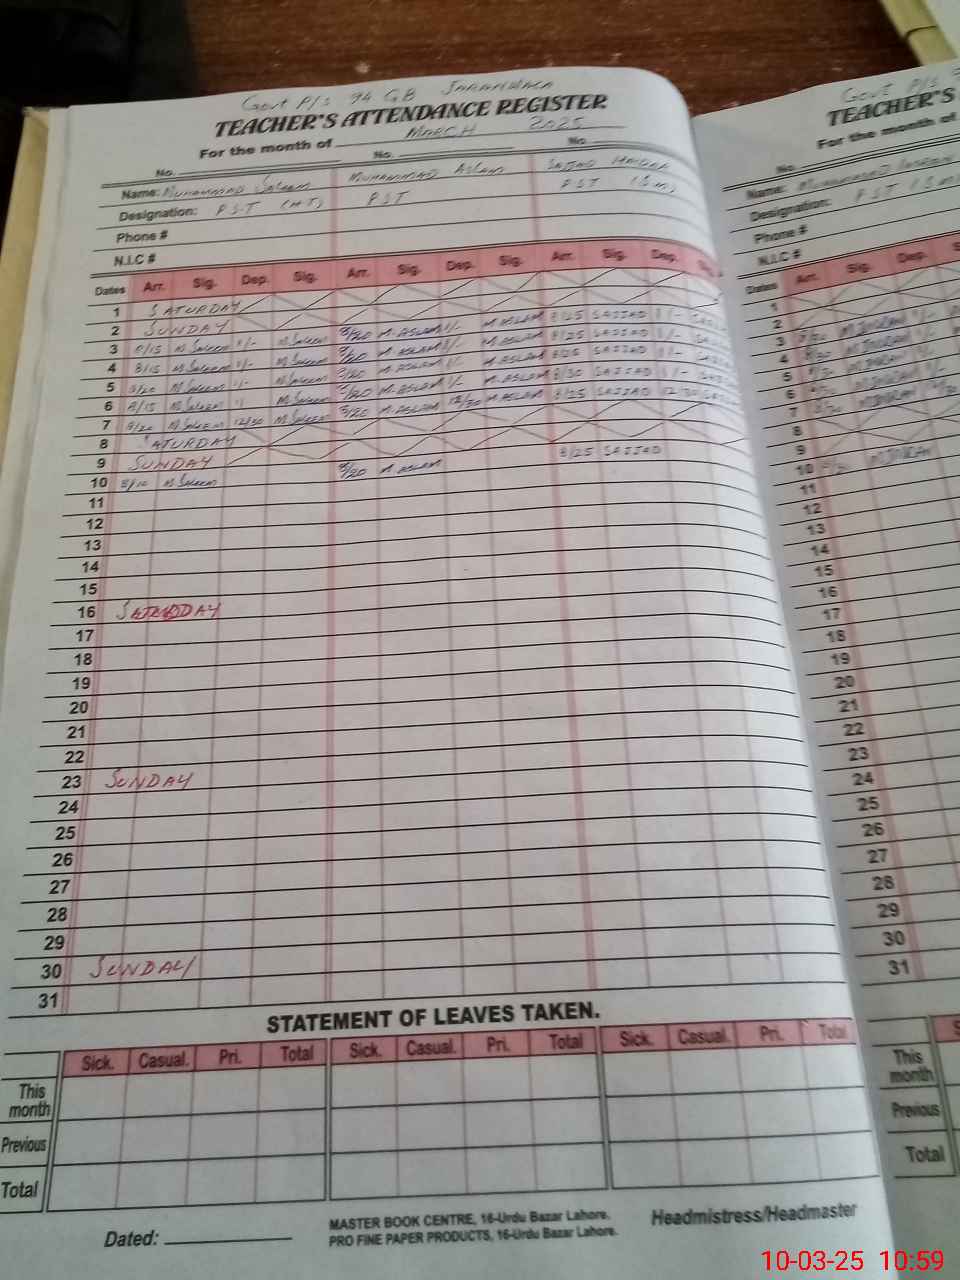 Govt P/S 94 GB JARANWALA
TEACHER'S ATTENDANCE REGISTER
For the month of MARCH 2025
No. No. No.
Name: MUHAMMAD Saleem MUHAMMAD Aslam SAJJAD HAIDER
Designation: P.S.T (H.T) PST PST (S.M)
Phone #
N.I.C #
Dates Arr. Sig. Dep. Sig. Arr. Sig. Dep. Sig. Arr. Sig. Dep. Sig.
1 SATURDAY
2 SUNDAY
3 8/15 M.Saleem 1/- M.Saleem 8/20 M.ASLAM 1/- M.ASLAM 8/25 SAJJAD 1/-
4 8/15 M.Saleem 1/- M.Saleem 8/20 M.ASLAM 1/- M.ASLAM 8/25 SAJJAD 1/-
5 8/20 M.Saleem 1/- M.Saleem 8/20 M.ASLAM 1/- M.ASLAM 8/25 SAJJAD 1/-
6 8/15 M.Saleem 1 M.Saleem 8/20 M.ASLAM 1/- M.ASLAM 8/30 SAJJAD 1/-
7 8/20 M.Saleem 12/30 M.Saleem 8/20 M.ASLAM 12/30 M.ASLAM 8/25 SAJJAD 12/30
8 SATURDAY
9 SUNDAY
10 8/10 M.Saleem 8/20 M.ASLAM 8/25 SAJJAD
11
12
13
14
15
16
17
18
19
20
21
22
23 SUNDAY
24
25
26
27
28
29
30 SUNDAY
31
STATEMENT OF LEAVES TAKEN.
Sick. Casual. Pri. Total Sick. Casual. Pri. Total Sick. Casual. Pri. Total
This month
Previous
Total
Dated:
MASTER BOOK CENTRE, 16-Urdu Bazar Lahore.
PRO FINE PAPER PRODUCTS, 16-Urdu Bazar Lahore.
Headmistress/Headmaster
Govt P/S
TEACHER'S
For the month of
No.
Name: MUHAMMAD IMRAN
Designation: PST (S.M)
Phone #
N.I.C #
Dates Arr. Sig. Dep.
1
2
3 M.IMRAN
4 M.IMRAN
5 M.IMRAN
6 M.IMRAN
7 M.IMRAN
8
9
10 M.IMRAN
11
12
13
14
15
16
17
18
19
20
21
22
23
24
25
26
27
28
29
30
31
This month
Previous
Total
10-03-25 10:59